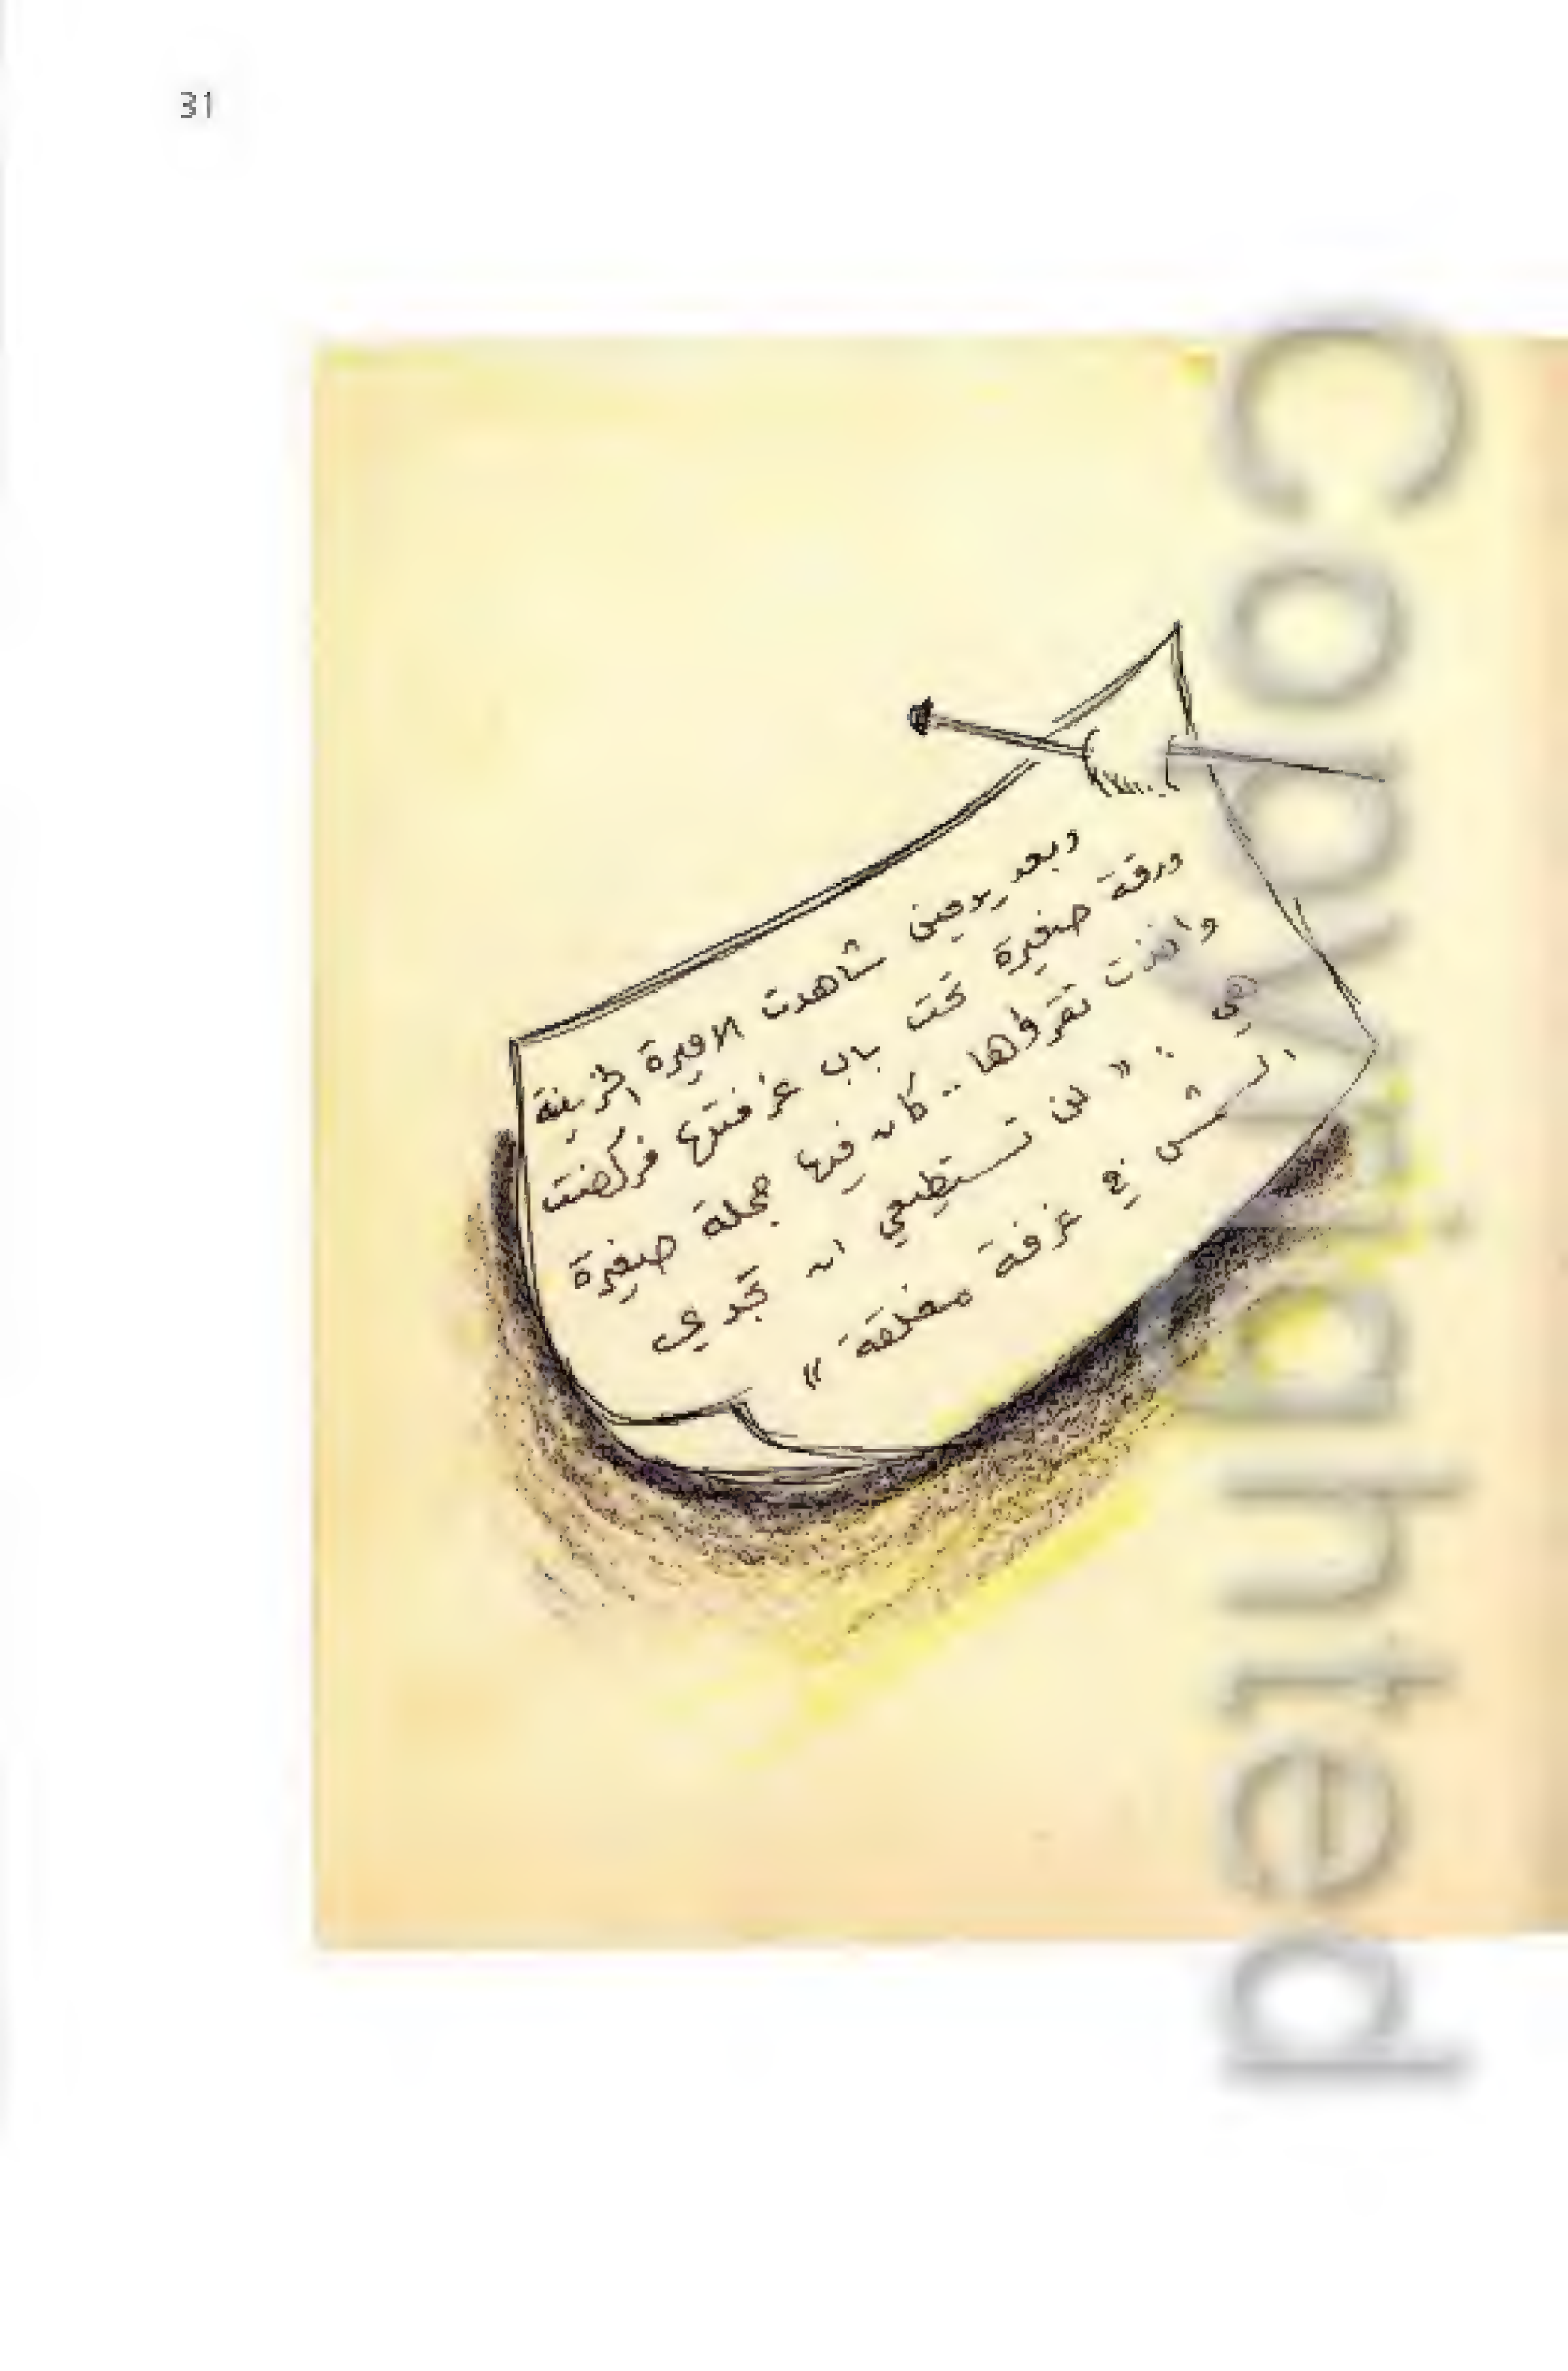 31
وبعد يومين شاهدت الاميرة الحزينة
ورقة صغيرة تحت باب غرفتها فركضت
واخذت تقرؤها .. كان فيها جملة صغيرة
هي : « لن تستطيعي ان تجدي
الشمس في غرفة مغلقة »
Copyrighted